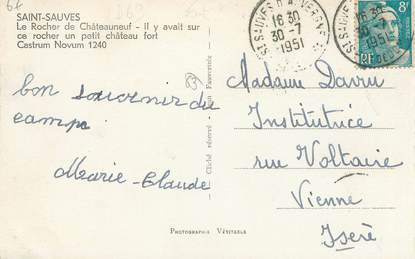 67
SAINT-SAUVES
Le Rocher de Châteauneuf - Il y avait sur
ce rocher un petit château fort
Castrum Novum 1240
bon souvenir du
camp.
Marie-Claude
Cliché réservé
ST SAUVES D'AUVERGNE
16 30
30-7
1951
ST SAUVES
16 30
30-7
1951
8F
RF
Madame Davru
Institutrice
rue Voltaire
Vienne
Isère
PHOTOGRAPHIE VÉRITABLE